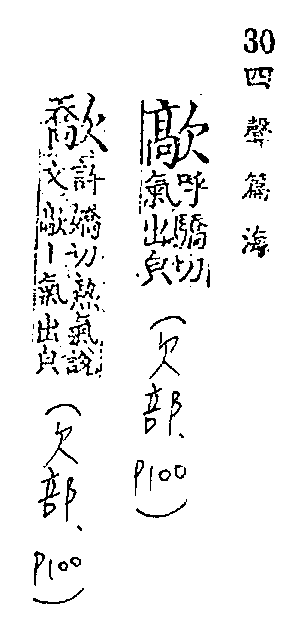 30四聲篇海
歊呼驕切
氣出皃
(欠部、P100)
歊許嬌切熱氣說
文歊歊氣出皃
(欠部、P100)